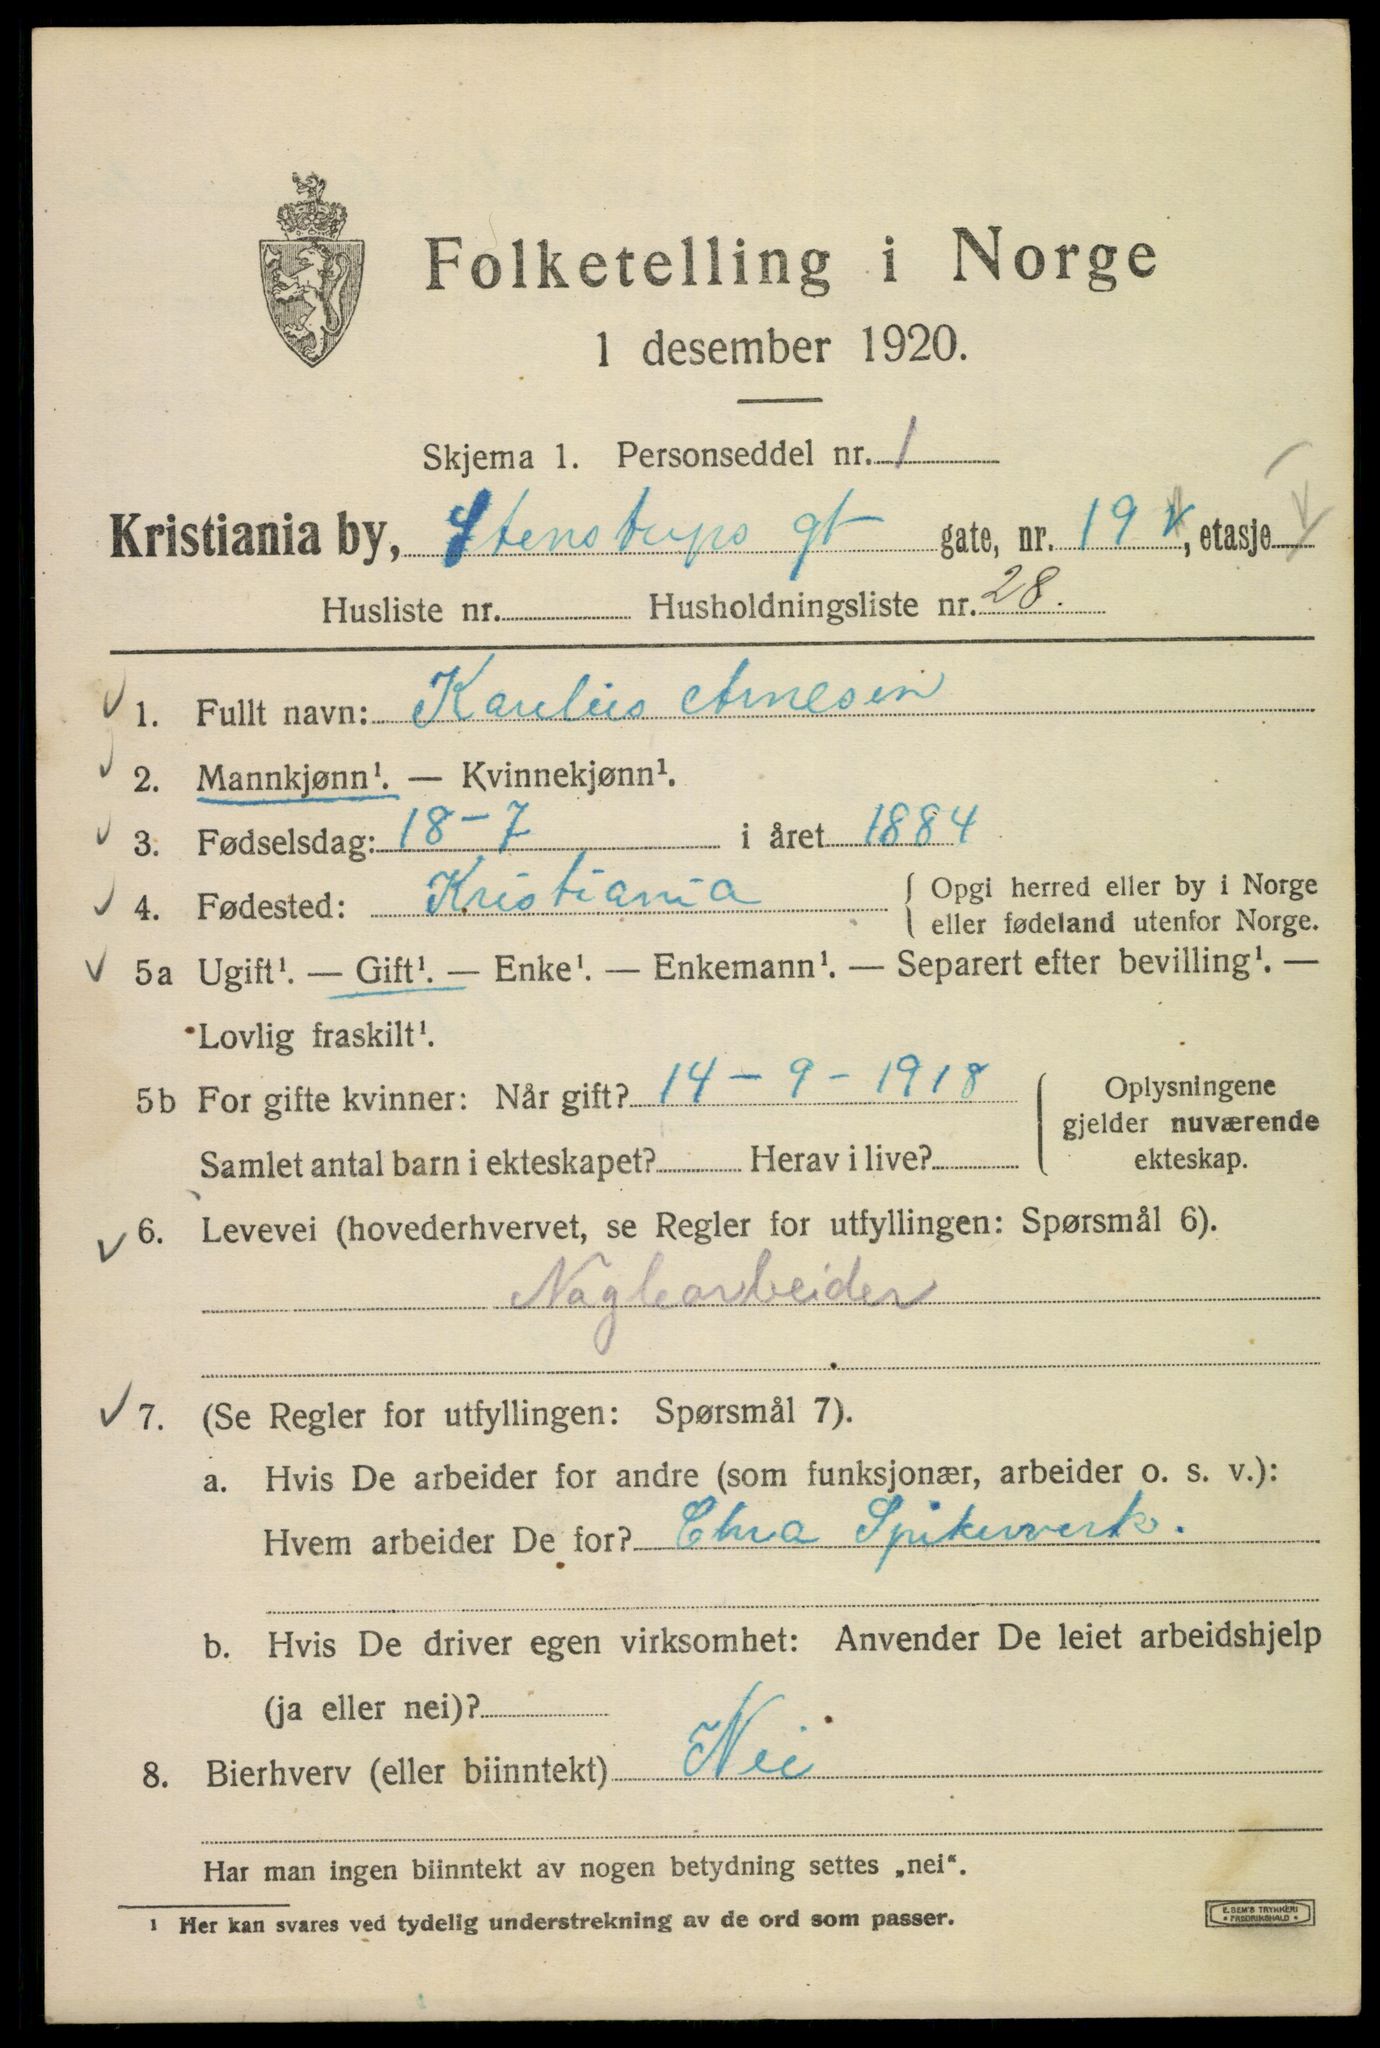 Folketelling i Norge
1 desember 1920.
Skjema 1. Personseddel nr. 1
Kristiania by, Stenstrups gt gate, nr. 19 V, etasje V
Husliste nr. Husholdningsliste nr. 28.
1. Fullt navn: Karelius Arnesen
2. Mannkjønn¹. — Kvinnekjønn¹.
3. Fødselsdag: 18-7 i året 1884
4. Fødested: Kristiania { Opgi herred eller by i Norge
eller fødeland utenfor Norge.
5a Ugift¹. — Gift¹. — Enke¹. — Enkemann¹. — Separert efter bevilling¹. —
Lovlig fraskilt¹.
5b For gifte kvinner: Når gift? 14-9-1918
Samlet antal barn i ekteskapet? Herav i live?
Oplysningene
gjelder nuværende
ekteskap.
6. Levevei (hovederhvervet, se Regler for utfyllingen: Spørsmål 6).
Naglearbeider
7. (Se Regler for utfyllingen: Spørsmål 7).
a. Hvis De arbeider for andre (som funksjonær, arbeider o. s. v.):
Hvem arbeider De for? Chra Spikerverk.
b. Hvis De driver egen virksomhet: Anvender De leiet arbeidshjelp
(ja eller nei)?
8. Bierhverv (eller biinntekt) Nei
Har man ingen biinntekt av nogen betydning settes „nei“.
¹ Her kan svares ved tydelig understrekning av de ord som passer.
E. SEM'S TRYKKERI
* FREDRIKSHALD *